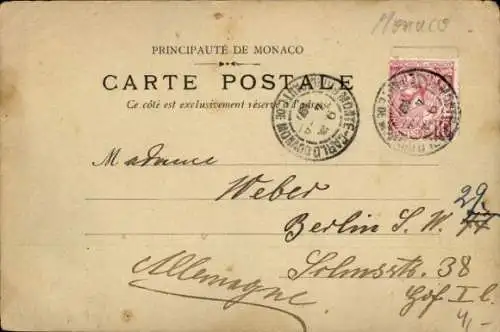 Monaco
PRINCIPAUTÉ DE MONACO
CARTE POSTALE
Ce côté est exclusivement réservé
MONTE-CARLO
MONTE-CARLO
Madame
Weber
29
Berlin S. W. 77
Allemagne
Solmsstr. 38
Hof I l.
4,-